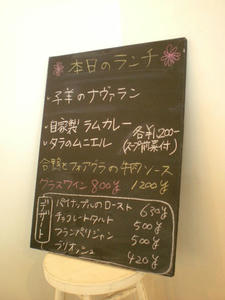 本日のランチ
・子羊のナヴァラン
・自家製 ラムカレー 各¥1,200-
・タラのムニエル (スープ前菜付)
合鴨とフォアグラの牛肉ソース
グラスワイン 800¥ 1200¥
デザート
パイナップルのロースト 630¥
チョコレートタルト 500¥
フランパリジャン 500¥
ブリオッシュ 420¥